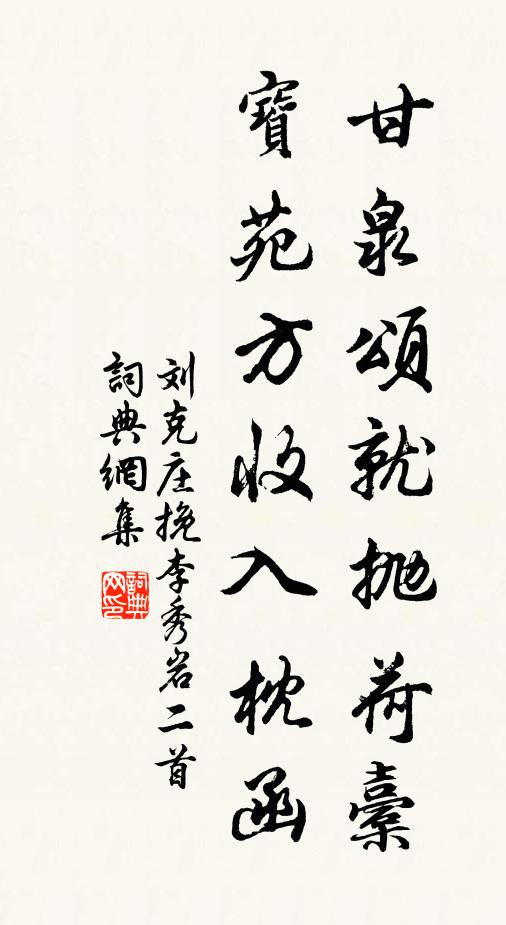 甘泉頌就抛荷橐
寶苑方收入枕函
刘克庄挽李秀岩二首
詞典網集
詞典网印